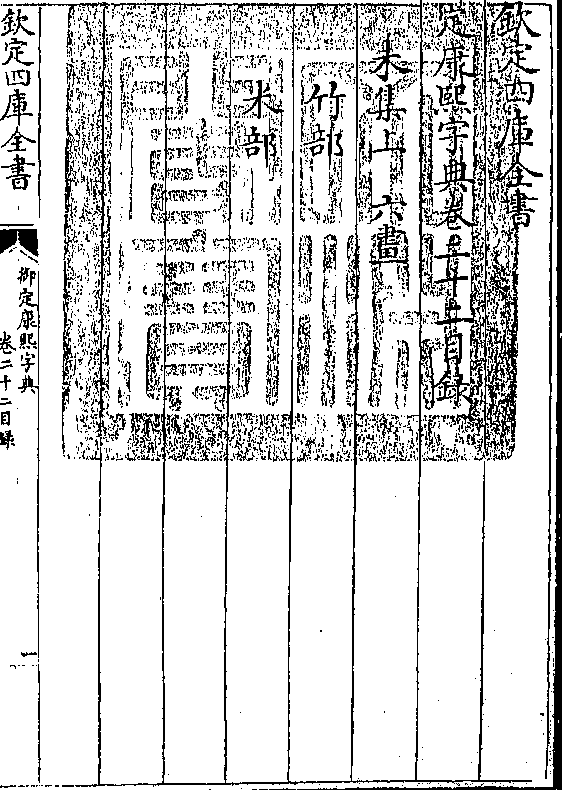 欽定四庫全書
定康熙字典卷二十二目録
未集上 六畫
竹部
米部
欽定四庫全書
御定康熙字典
卷二十二目録
一